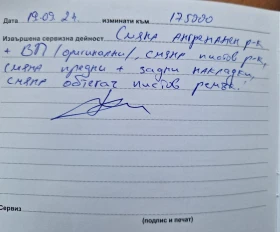 Дата 19.09.24. изминати км. 175000
Извършена сервизна дейност: Смяна ангренажен р-к
+ ВП /оригинални/, смяна пистов р-к,
смяна предни + задни накладки,
смяна обтегач пистов ремък.
Сервиз
(подпис и печат)